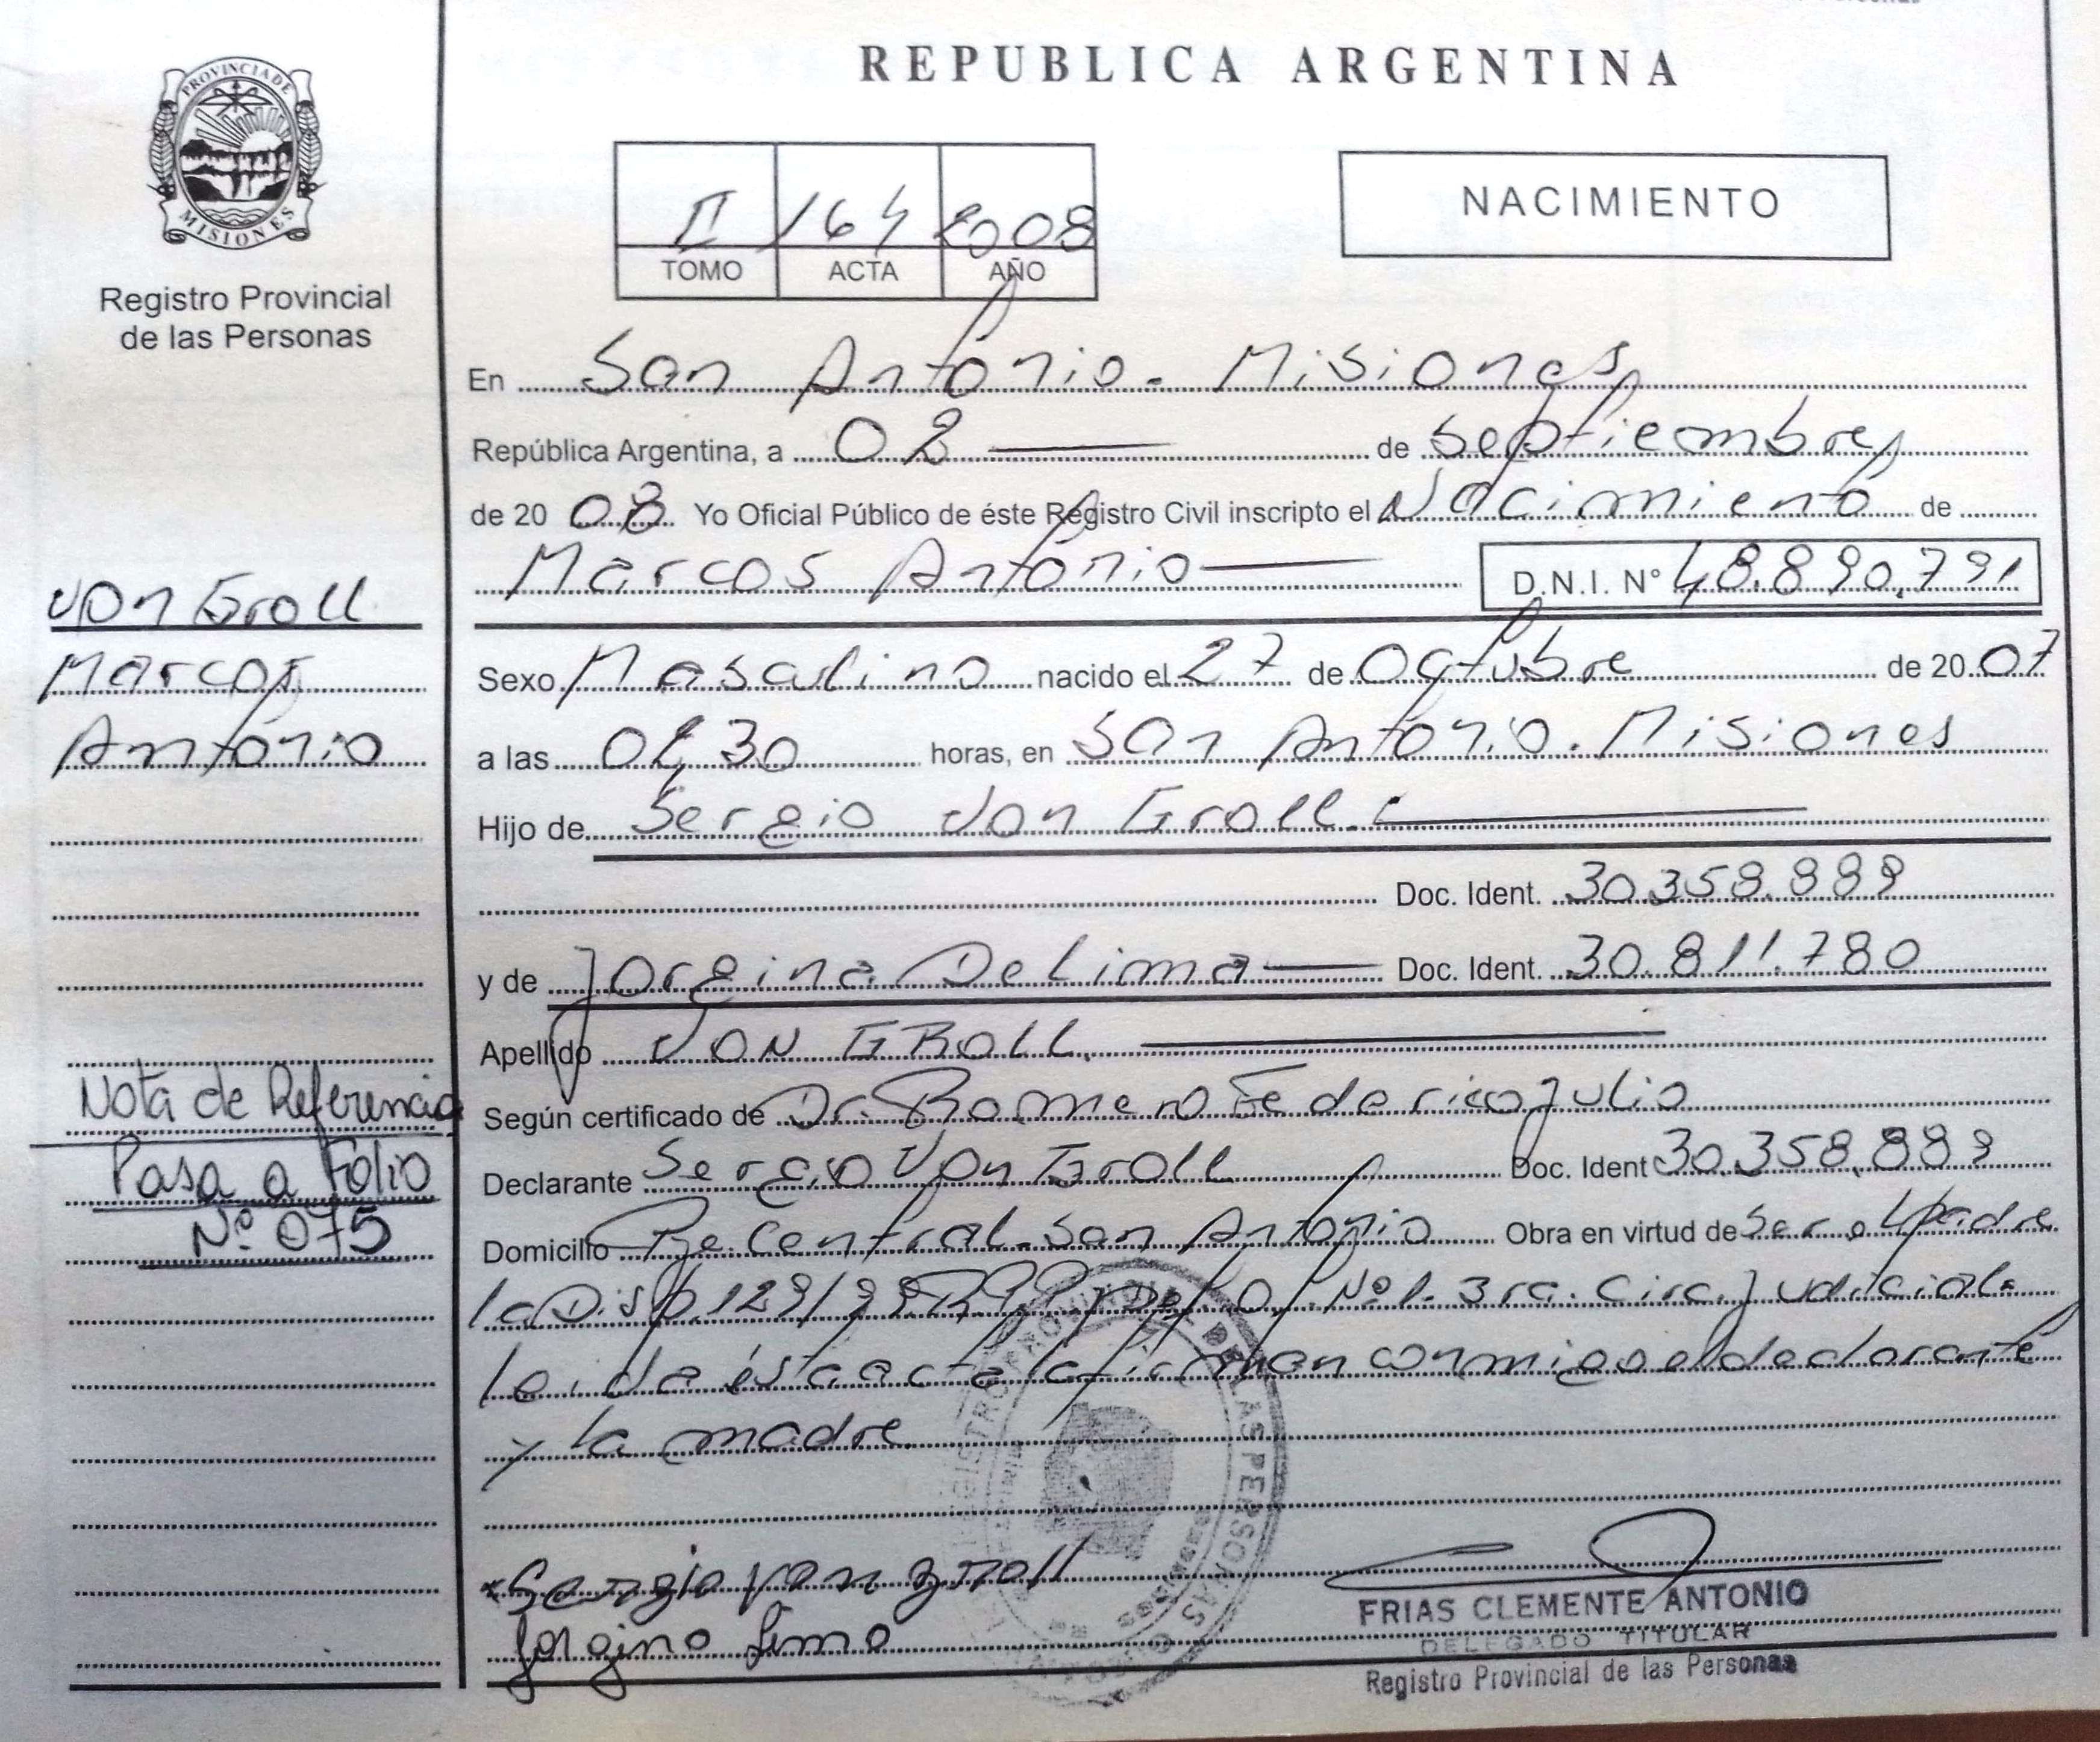 REPUBLICA ARGENTINA
PROVINCIA DE
MISIONES
Registro Provincial
de las Personas
II 164 2008
TOMO ACTA AÑO
NACIMIENTO
En San Antonio - Misiones
República Argentina, a 02 de septiembre
de 20 08 Yo Oficial Público de éste Registro Civil inscripto el Nacimiento de
Marcos Antonio D.N.I. Nº 48.890.791
Von Groll
Marcos
Antonio
Sexo Masculino nacido el 27 de Octubre de 20 07
a las 30 horas, en San Antonio. Misiones
Hijo de Sergio Von Groll.
Doc. Ident. 30.358.889
y de Jorgina De Lima Doc. Ident. 30.811.780
Apellido VON GROLL.
Según certificado de Dr. Romero Federico Julio
Declarante Sergio Von Groll Doc. Ident 30.358.889
Domicilio Pje. Central-San Antonio Obra en virtud de Ser el padre
Nota de Referencia
Pasa a Folio
Nº 075
la Disp. 129/99 Nº 1. 3ra. Circ. Judicial.
leída ésta acta la firman conmigo el declarante
y la madre
Sergio von groll
Jorgina Lima
FRIAS CLEMENTE ANTONIO
DELEGADO TITULAR
Registro Provincial de las Personas